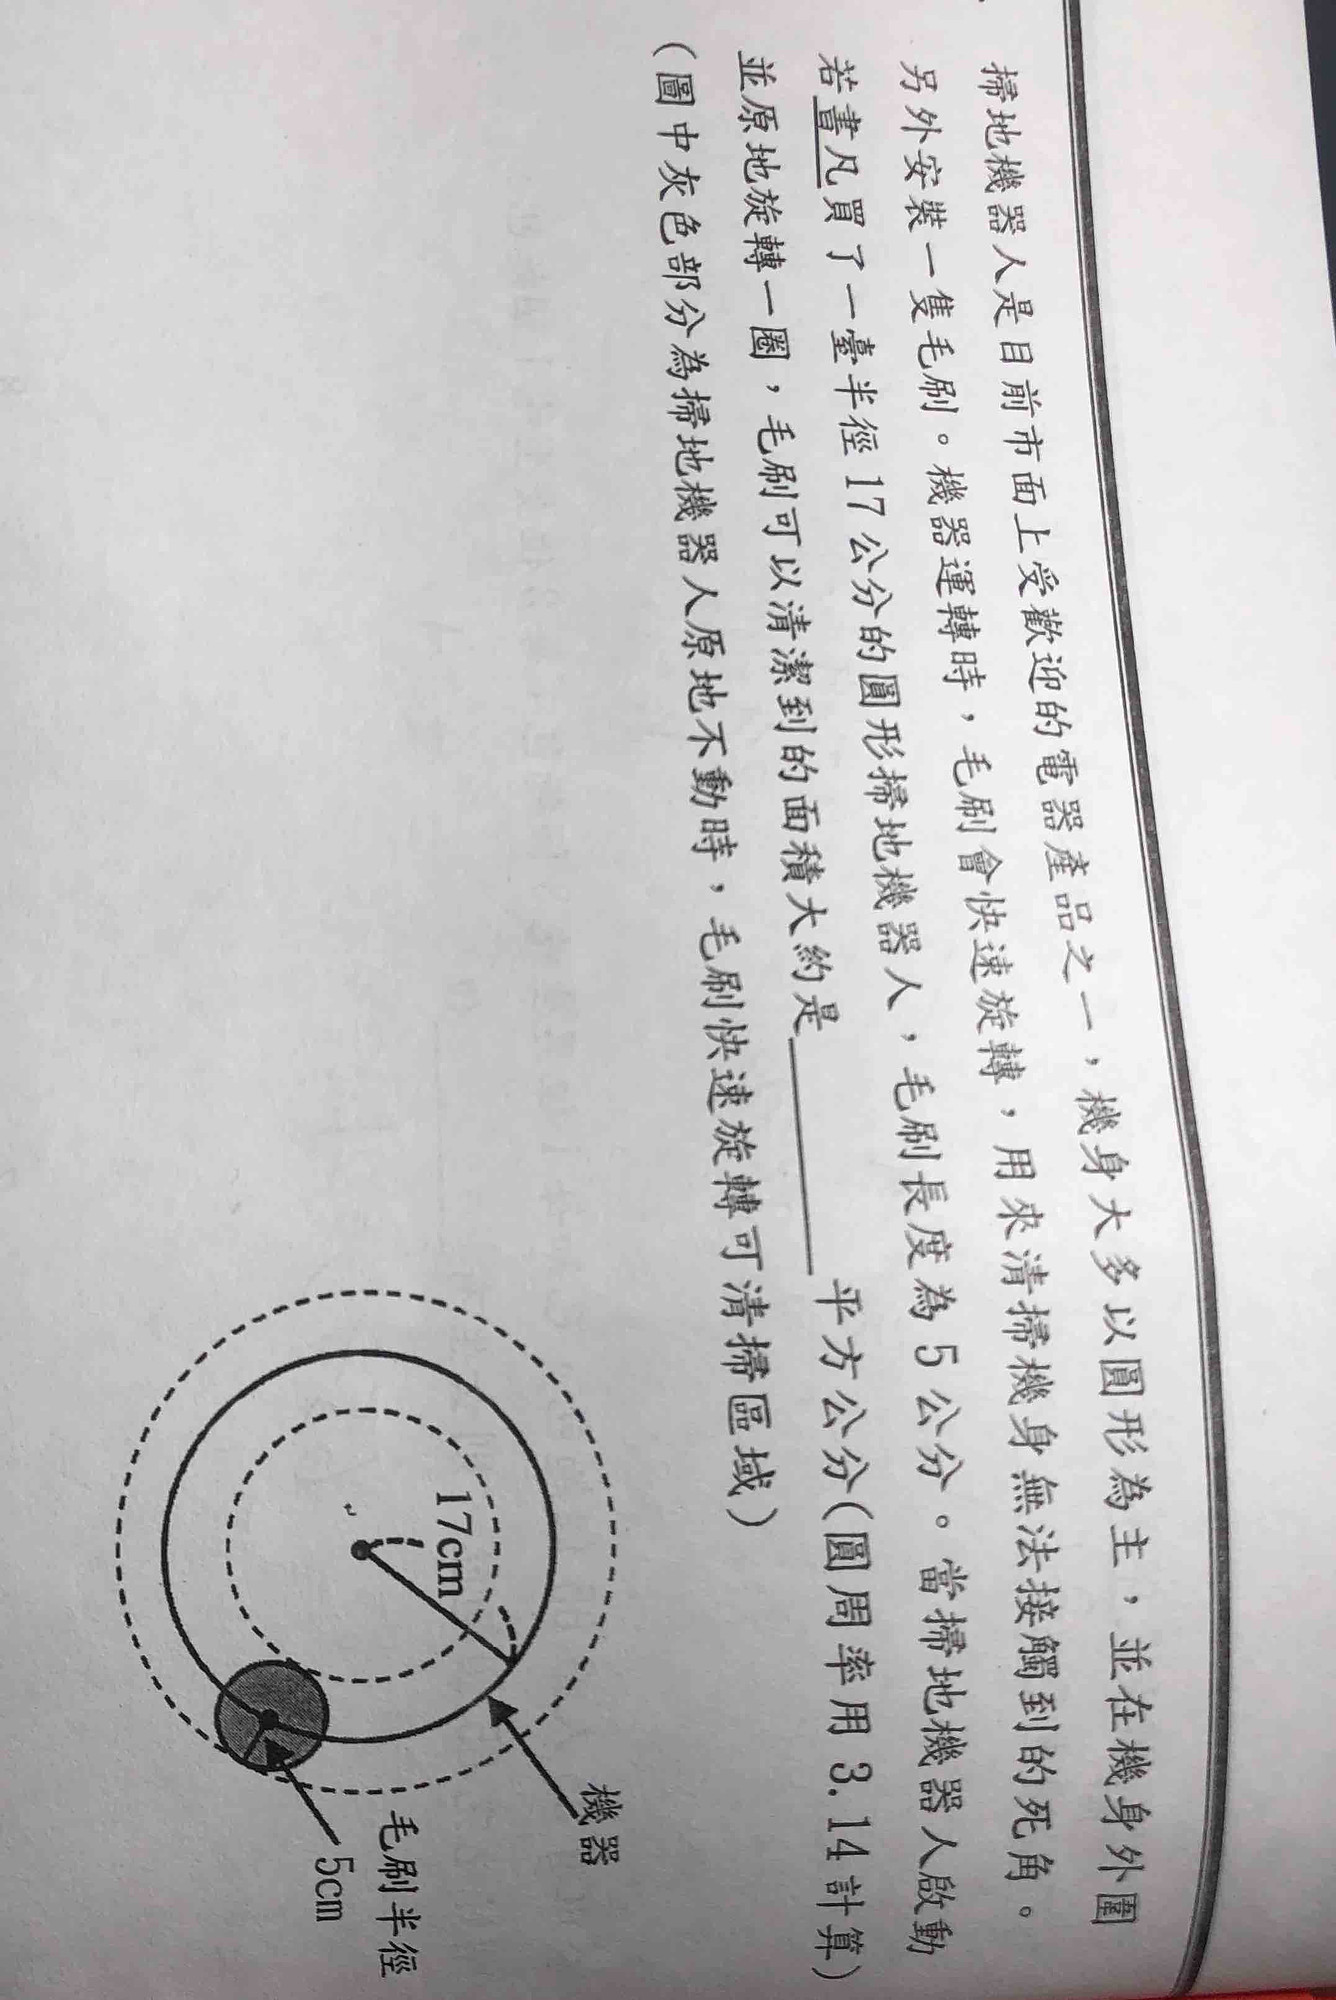 掃地機器人是目前市面上受歡迎的電器產品之一，機身大多以圓形為主，並在機身外圍
另外安裝一隻毛刷。機器運轉時，毛刷會快速旋轉，用來清掃機身無法接觸到的死角。
若畫凡買了一臺半徑17公分的圓形掃地機器人，毛刷長度為5公分。當掃地機器人啟動
並原地旋轉一圈，毛刷可以清潔到的面積大約是______平方公分(圓周率用3.14計算)
(圖中灰色部分為掃地機器人原地不動時，毛刷快速旋轉可清掃區域)
機器
17cm
毛刷半徑
5cm